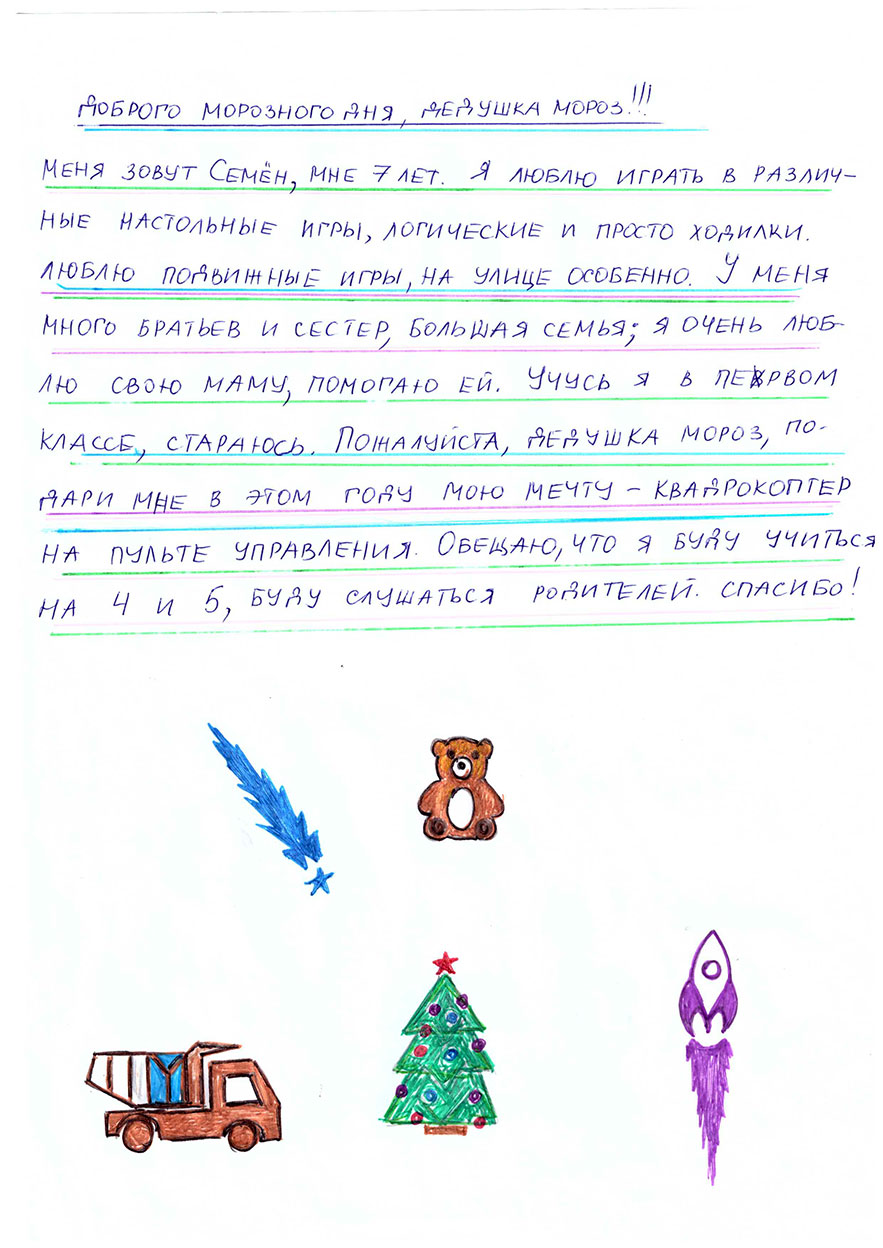 ДОБРОГО МОРОЗНОГО ДНЯ, ДЕДУШКА МОРОЗ!!!
МЕНЯ ЗОВУТ СЕМЁН, МНЕ 7 ЛЕТ. Я ЛЮБЛЮ ИГРАТЬ В РАЗЛИЧ-
НЫЕ НАСТОЛЬНЫЕ ИГРЫ, ЛОГИЧЕСКИЕ И ПРОСТО ХОДИЛКИ.
ЛЮБЛЮ ПОДВИЖНЫЕ ИГРЫ, НА УЛИЦЕ ОСОБЕННО. У МЕНЯ
МНОГО БРАТЬЕВ И СЕСТЕР, БОЛЬШАЯ СЕМЬЯ; Я ОЧЕНЬ ЛЮБ-
ЛЮ СВОЮ МАМУ, ПОМОГАЮ ЕЙ. УЧУСЬ Я В ПЕРВОМ
КЛАССЕ, СТАРАЮСЬ. ПОЖАЛУЙСТА, ДЕДУШКА МОРОЗ, ПО-
ДАРИ МНЕ В ЭТОМ ГОДУ МОЮ МЕЧТУ – КВАДРОКОПТЕР
НА ПУЛЬТЕ УПРАВЛЕНИЯ. ОБЕЩАЮ, ЧТО Я БУДУ УЧИТЬСЯ
НА 4 И 5, БУДУ СЛУШАТЬСЯ РОДИТЕЛЕЙ. СПАСИБО!